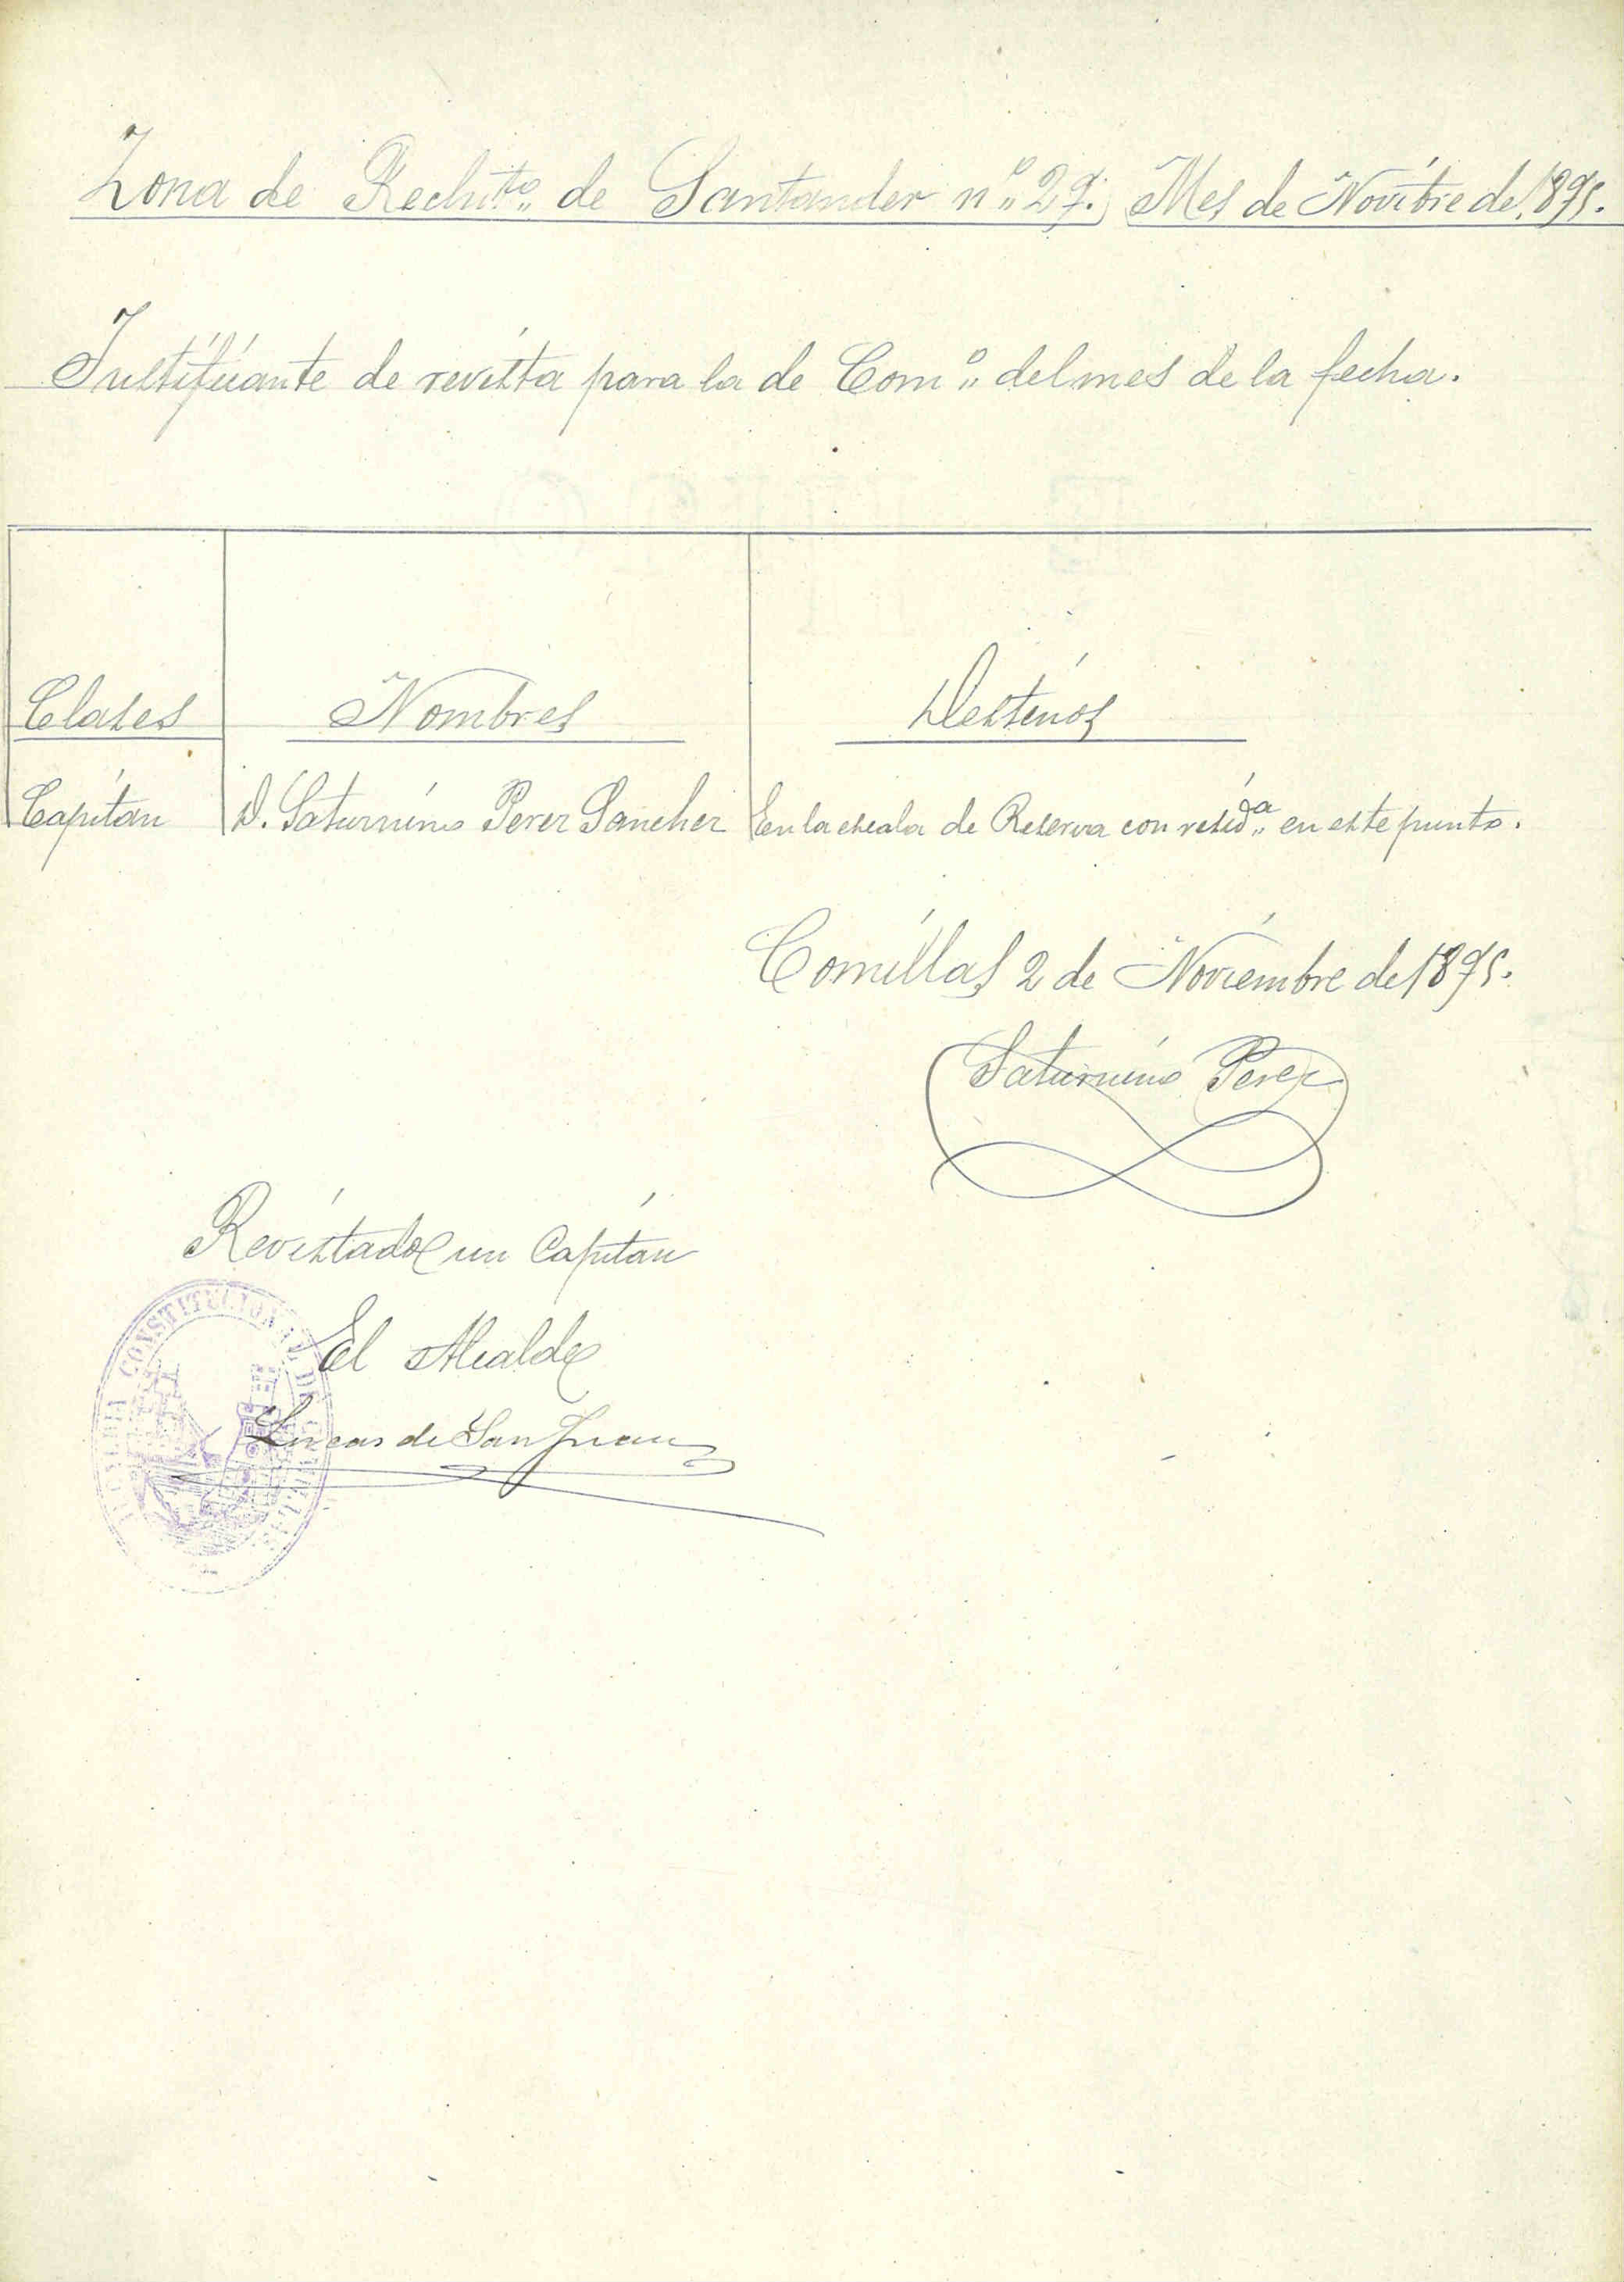 Zona de Reclutto. de Santander nº 29. Mes de Novibre de 1895.
Justificante de revista para la de Comº del mes de la fecha.
Clases Nombres Destinos
Capitan D. Saturnino Perez Sanchez En la escala de Reserva con residª en este punto.
Comillas 2 de Noviembre de 1895.
Saturnino Perez
Revistado un Capitan
El Alcalde
Lucas de San Juan
CONSTITUCIONAL DE